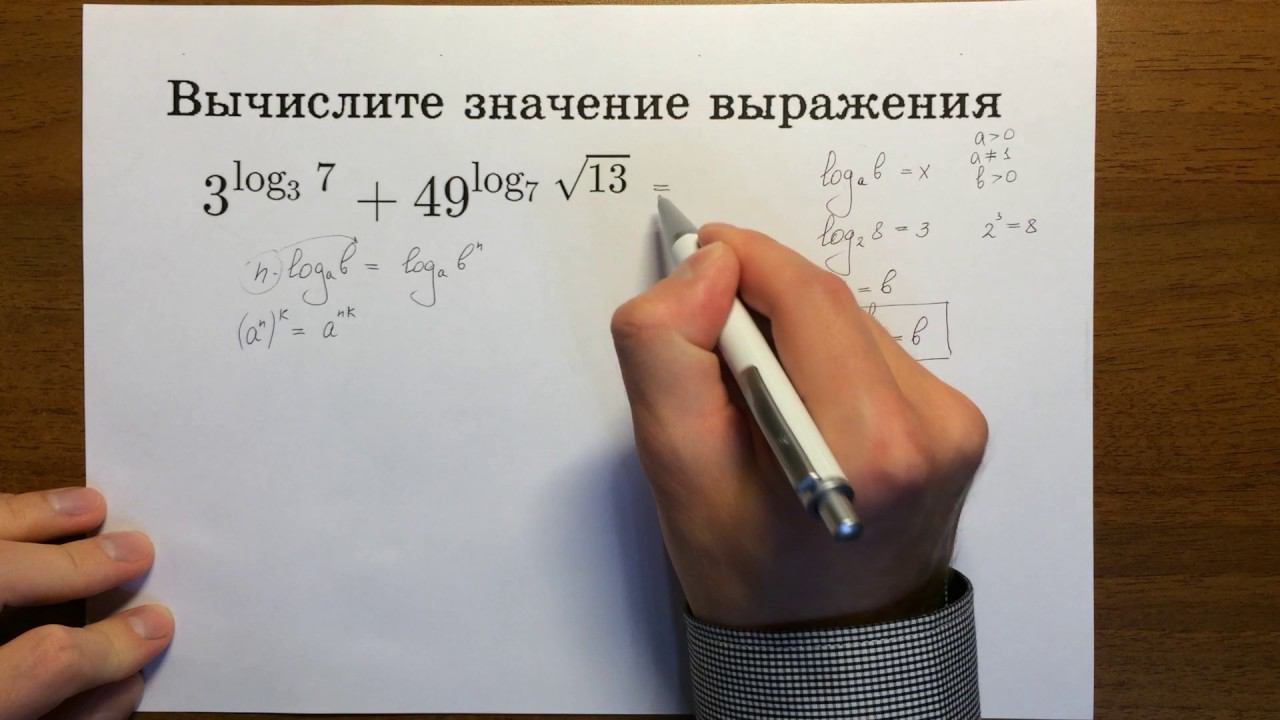 Вычислите значение выражения
3^{log_3 7} + 49^{log_7 √13} =
n·log_a b = log_a b^n
(a^n)^k = a^{nk}
log_a b = x
a>0
a≠1
b>0
log_2 8 = 3 2^3 = 8
= b
= b